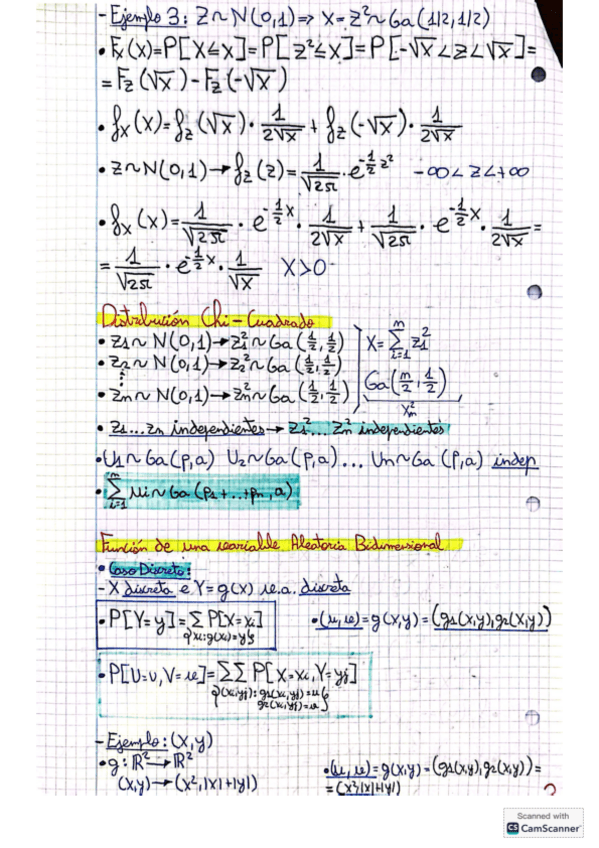 - Ejemplo 3: Z~N(0,1) ⇒ X=Z²~Ga(1/2,1/2)
• Fx(x)=P[X≤x]=P[Z²≤x]=P[-√x<Z<√x]=
=Fz(√x)-Fz(-√x)
• fx(x)=fz(√x)·1/(2√x)+fz(-√x)·1/(2√x)
• Z~N(0,1)→fz(z)=1/√2π·e^(-1/2 z²) -∞<z<+∞
• fx(x)=1/√2π·e^(-1/2 x)·1/(2√x)+1/√2π·e^(-1/2 x)·1/(2√x)=
=1/√2π·e^(-1/2 x)·1/√x X>0
Distribución Chi-Cuadrado
• Z1~N(0,1)→Z1²~Ga(1/2,1/2)
• Z2~N(0,1)→Z2²~Ga(1/2,1/2)
⋮
• Zn~N(0,1)→Zn²~Ga(1/2,1/2)
X=∑(i=1, n) Zi²
Ga(n/2,1/2)
Xn²
• Z1...Zn independientes→Z1²...Zn² independientes
• U1~Ga(p,a) U2~Ga(p,a)...Un~Ga(p,a) indep
• ∑(i=1, n) Ui~Ga(p1+...+pn,a)
Función de una variable Aleatoria Bidimensional
• Caso Discreto:
- X discreta e Y=g(X) v.a. discreta
• P[Y=y]=∑ P[X=xi]
{xi:g(xi)=y}
• (u,v)=g(x,y)=(g1(x,y),g2(x,y))
• P[U=u,V=v]=∑∑ P[X=xi,Y=yj]
{(xi,yj):g1(xi,yj)=u
g2(xi,yj)=v}
- Ejemplo: (X,Y)
• g:ℝ²→ℝ²
(x,y)→(x²,|x|+|y|)
• (u,v)=g(x,y)=(g1(x,y),g2(x,y))=
=(x²,|x|+|y|)
Scanned with
CS CamScanner